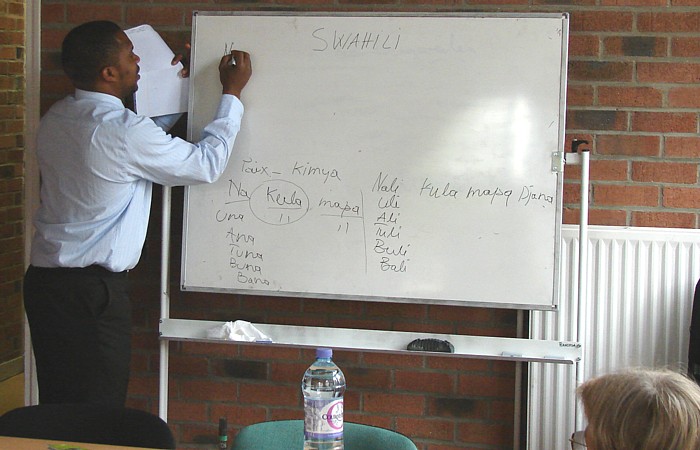 SWAHILI
N
Taix - Kimya
Na Kula mapa
Una " "
Ana
Tuna
Buna
Bana
Nali Kula mapa Djana
Uli
Ali
Tuli
Buli
Bali